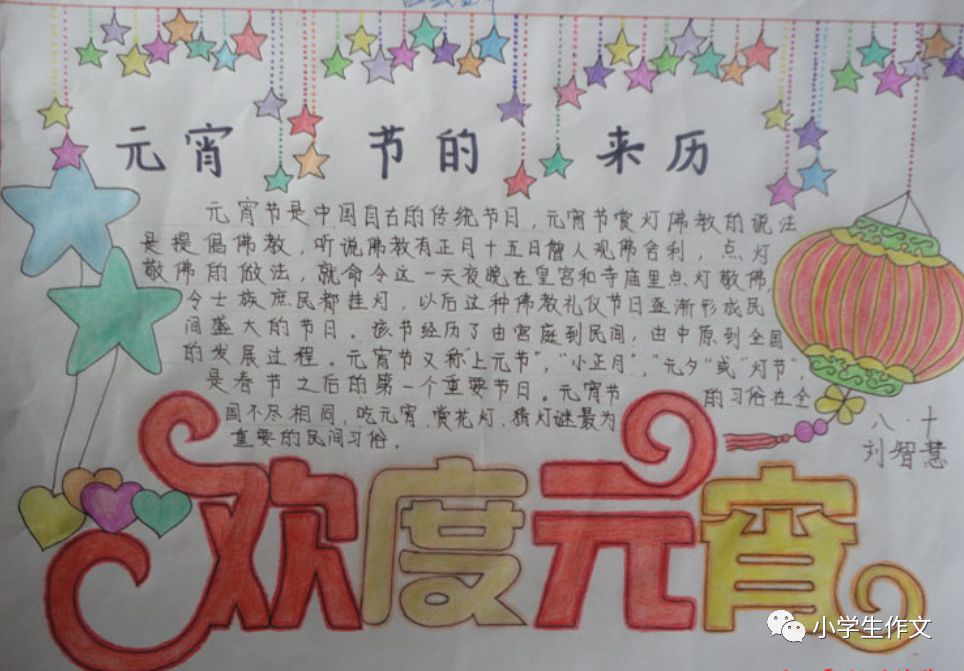 元宵 节的 来历
元宵节是中国自古的传统节日,元宵节赏灯佛教的说法
是提倡佛教,听说佛教有正月十五日僧人观佛舍利,点灯
敬佛的做法,就命令这一天夜晚在皇宫和寺庙里点灯敬佛,
令士族庶民都挂灯,以后这种佛教礼仪节日逐渐形成民
间盛大的节日。该节经历了由宫庭到民间,由中原到全国
的发展过程。元宵节又称"上元节","小正月","元夕"或"灯节",
是春节之后的第一个重要节日。元宵节 的习俗在全
国不尽相同,吃元宵、赏花灯、猜灯谜最为
重要的民间习俗。
八·十
刘智慧
欢度元宵
小学生作文